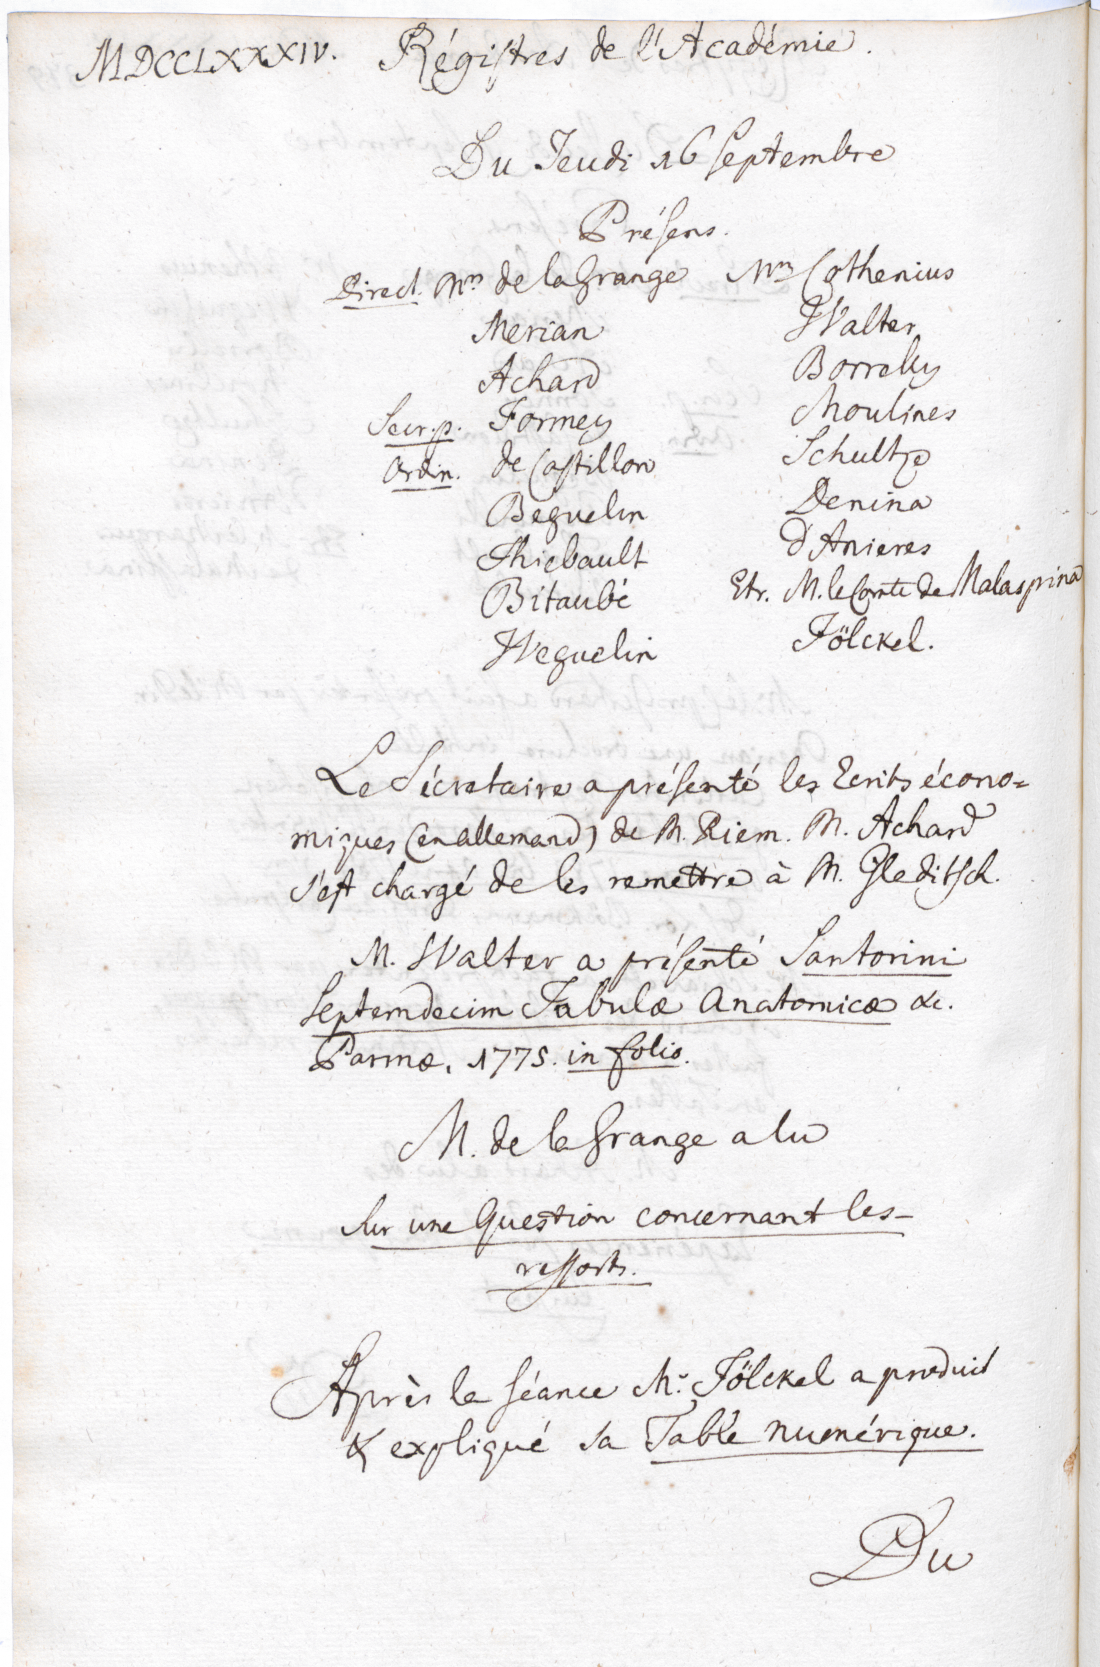 MDCCLXXXIV. Régistres de l'Académie.
Du Jeudi 16 Septembre
Présens.
Direct. Mrs de la Grange
Merian
Achard
Secr. p. Formey
Ordin. de Castillon
Beguelin
Thiebault
Bitaubé
Weguelin
Mrs Cothenius
Walter
Borrelly
Moulines
Schultze
Denina
d'Anieres
Etr. M. le Comte de Malaspina
Fölckel.
Le Sécretaire a présenté les Ecrits écono=
miques (en allemand) de M. Riem. M. Achard
s'est chargé de les remettre à M. Gleditsch.
M. Walter a présenté Santorini
Septemdecim Tabulæ Anatomicæ &c.
Parmæ, 1775. in folio.
M. de la Grange a lu
Sur une Question concernant les
ressorts.
Après la séance Mr. Fölckel a produit
& expliqué sa Table numérique.
Du